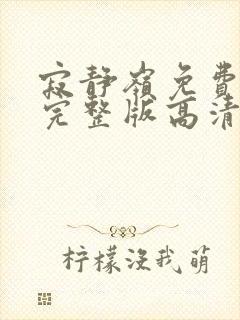 寂静嶺免費
完整版高清
柠檬没我萌